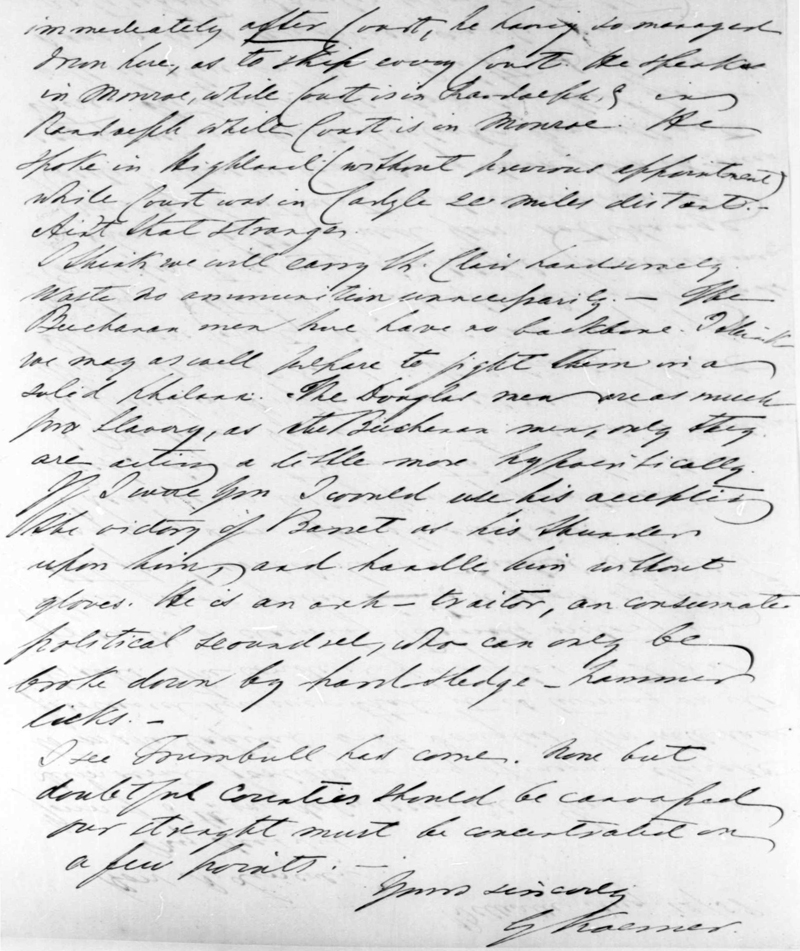 immediately after Court, he having so managed
down here, as to skip every Court. He speaks
in Monroe, while Court is in Randolph, & in
Randolph while Court is in Monroe. He
spoke in Highland (without previous appointment)
while Court was in Carlyle 20 miles distant.–
Aint that strange.
I think we will carry St. Clair handsomely.
Waste no ammunition unnecessarily. – The
Buchanan men here have no backbone. I think
we may as well prepare to fight them in a
solid phalanx. The Douglas men are as much
pro Slavery, as the Buchanan men, only they
are acting a little more hypocritically.
If I were you I would use his accepting
the victory of Barret as his thunder
upon him, and handle him without
gloves. He is an arch-traitor, an consumate
political scoundrel, who can only be
broke down by hard sledge-hammer
licks. –
I see Trumbull has come. None but
doubtful counties should be canvassed
our strenght must be concentrated on
a few points. –
Yours sincerely
G Koerner.